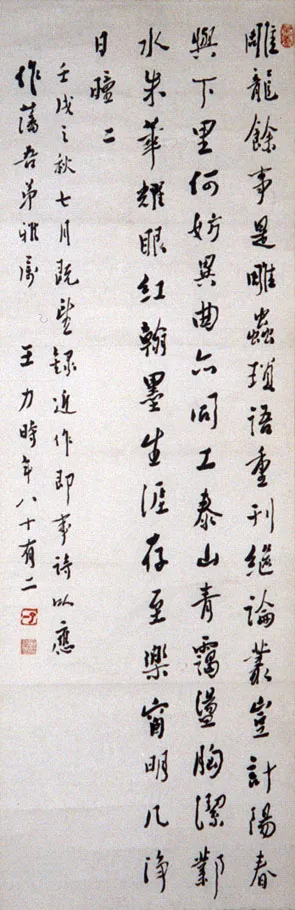 雕龍餘事是雕蟲瑣語重刊繼論叢豈計陽春
與下里何妨異曲亦同工泰山青靄盪胸潔鄴
水朱華耀眼紅翰墨生涯存至樂窗明几淨
日曈〻
壬戌之秋七月既望録近作即事詩以應
作藩吾弟雅屬 王力時年八十有二